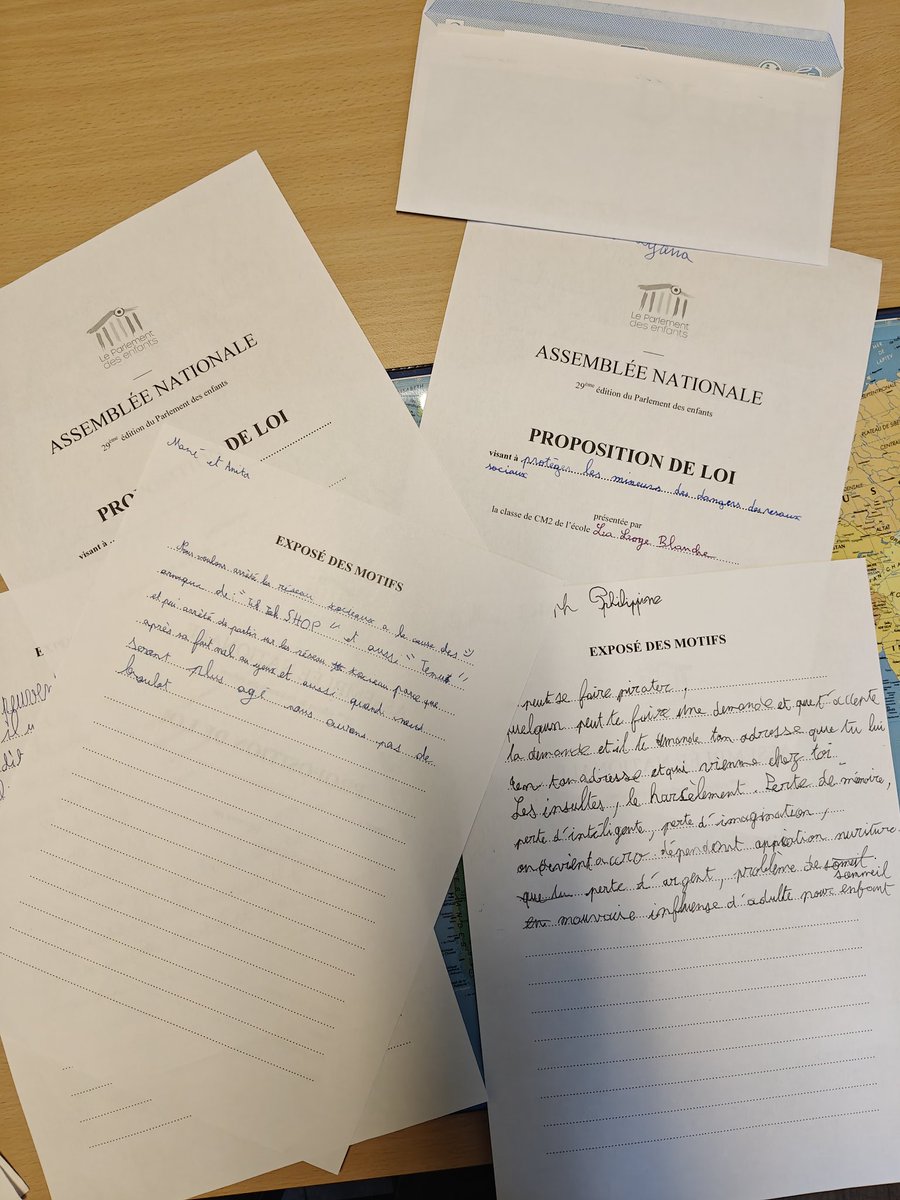 Le Parlement
des enfants
ASSEMBLÉE NATIONALE
29ème édition du Parlement des enfants
DE LOI
PRO
visant à
Mané et Anita
EXPOSÉ DES MOTIFS
Nous voulons arrêté les réseau socieaux a la cause des
arnaque de: "tik tok SHOP" et aussi "Temu"
et puis arrêté de partir sur les réseau parce que
après sa fait mal au yeux et aussi quand nous
seront plus agé nous aurons pas de
boulot
Le Parlement
des enfants
ASSEMBLÉE NATIONALE
29ème édition du Parlement des enfants
PROPOSITION DE LOI
visant à protéger les mineurs des dangers des resaux
sociaux
présentée par
la classe de CM2 de l'école Blanche
Philippine
EXPOSÉ DES MOTIFS
peut se faire pirater,
quelqun peut te faire une demande et que t-accepte
la demande et il te demande ton adresse que tu lui
ton adresse et qui vienne chez toi
Les insultes, le harsèlement. Perte de mémoire,
perte d'intéligente, perte d'imagination,
on devient accro dépendent nuriture
perte d'argent, problème de someil
sommeil
mauvaise influense d'adulte pour enfant